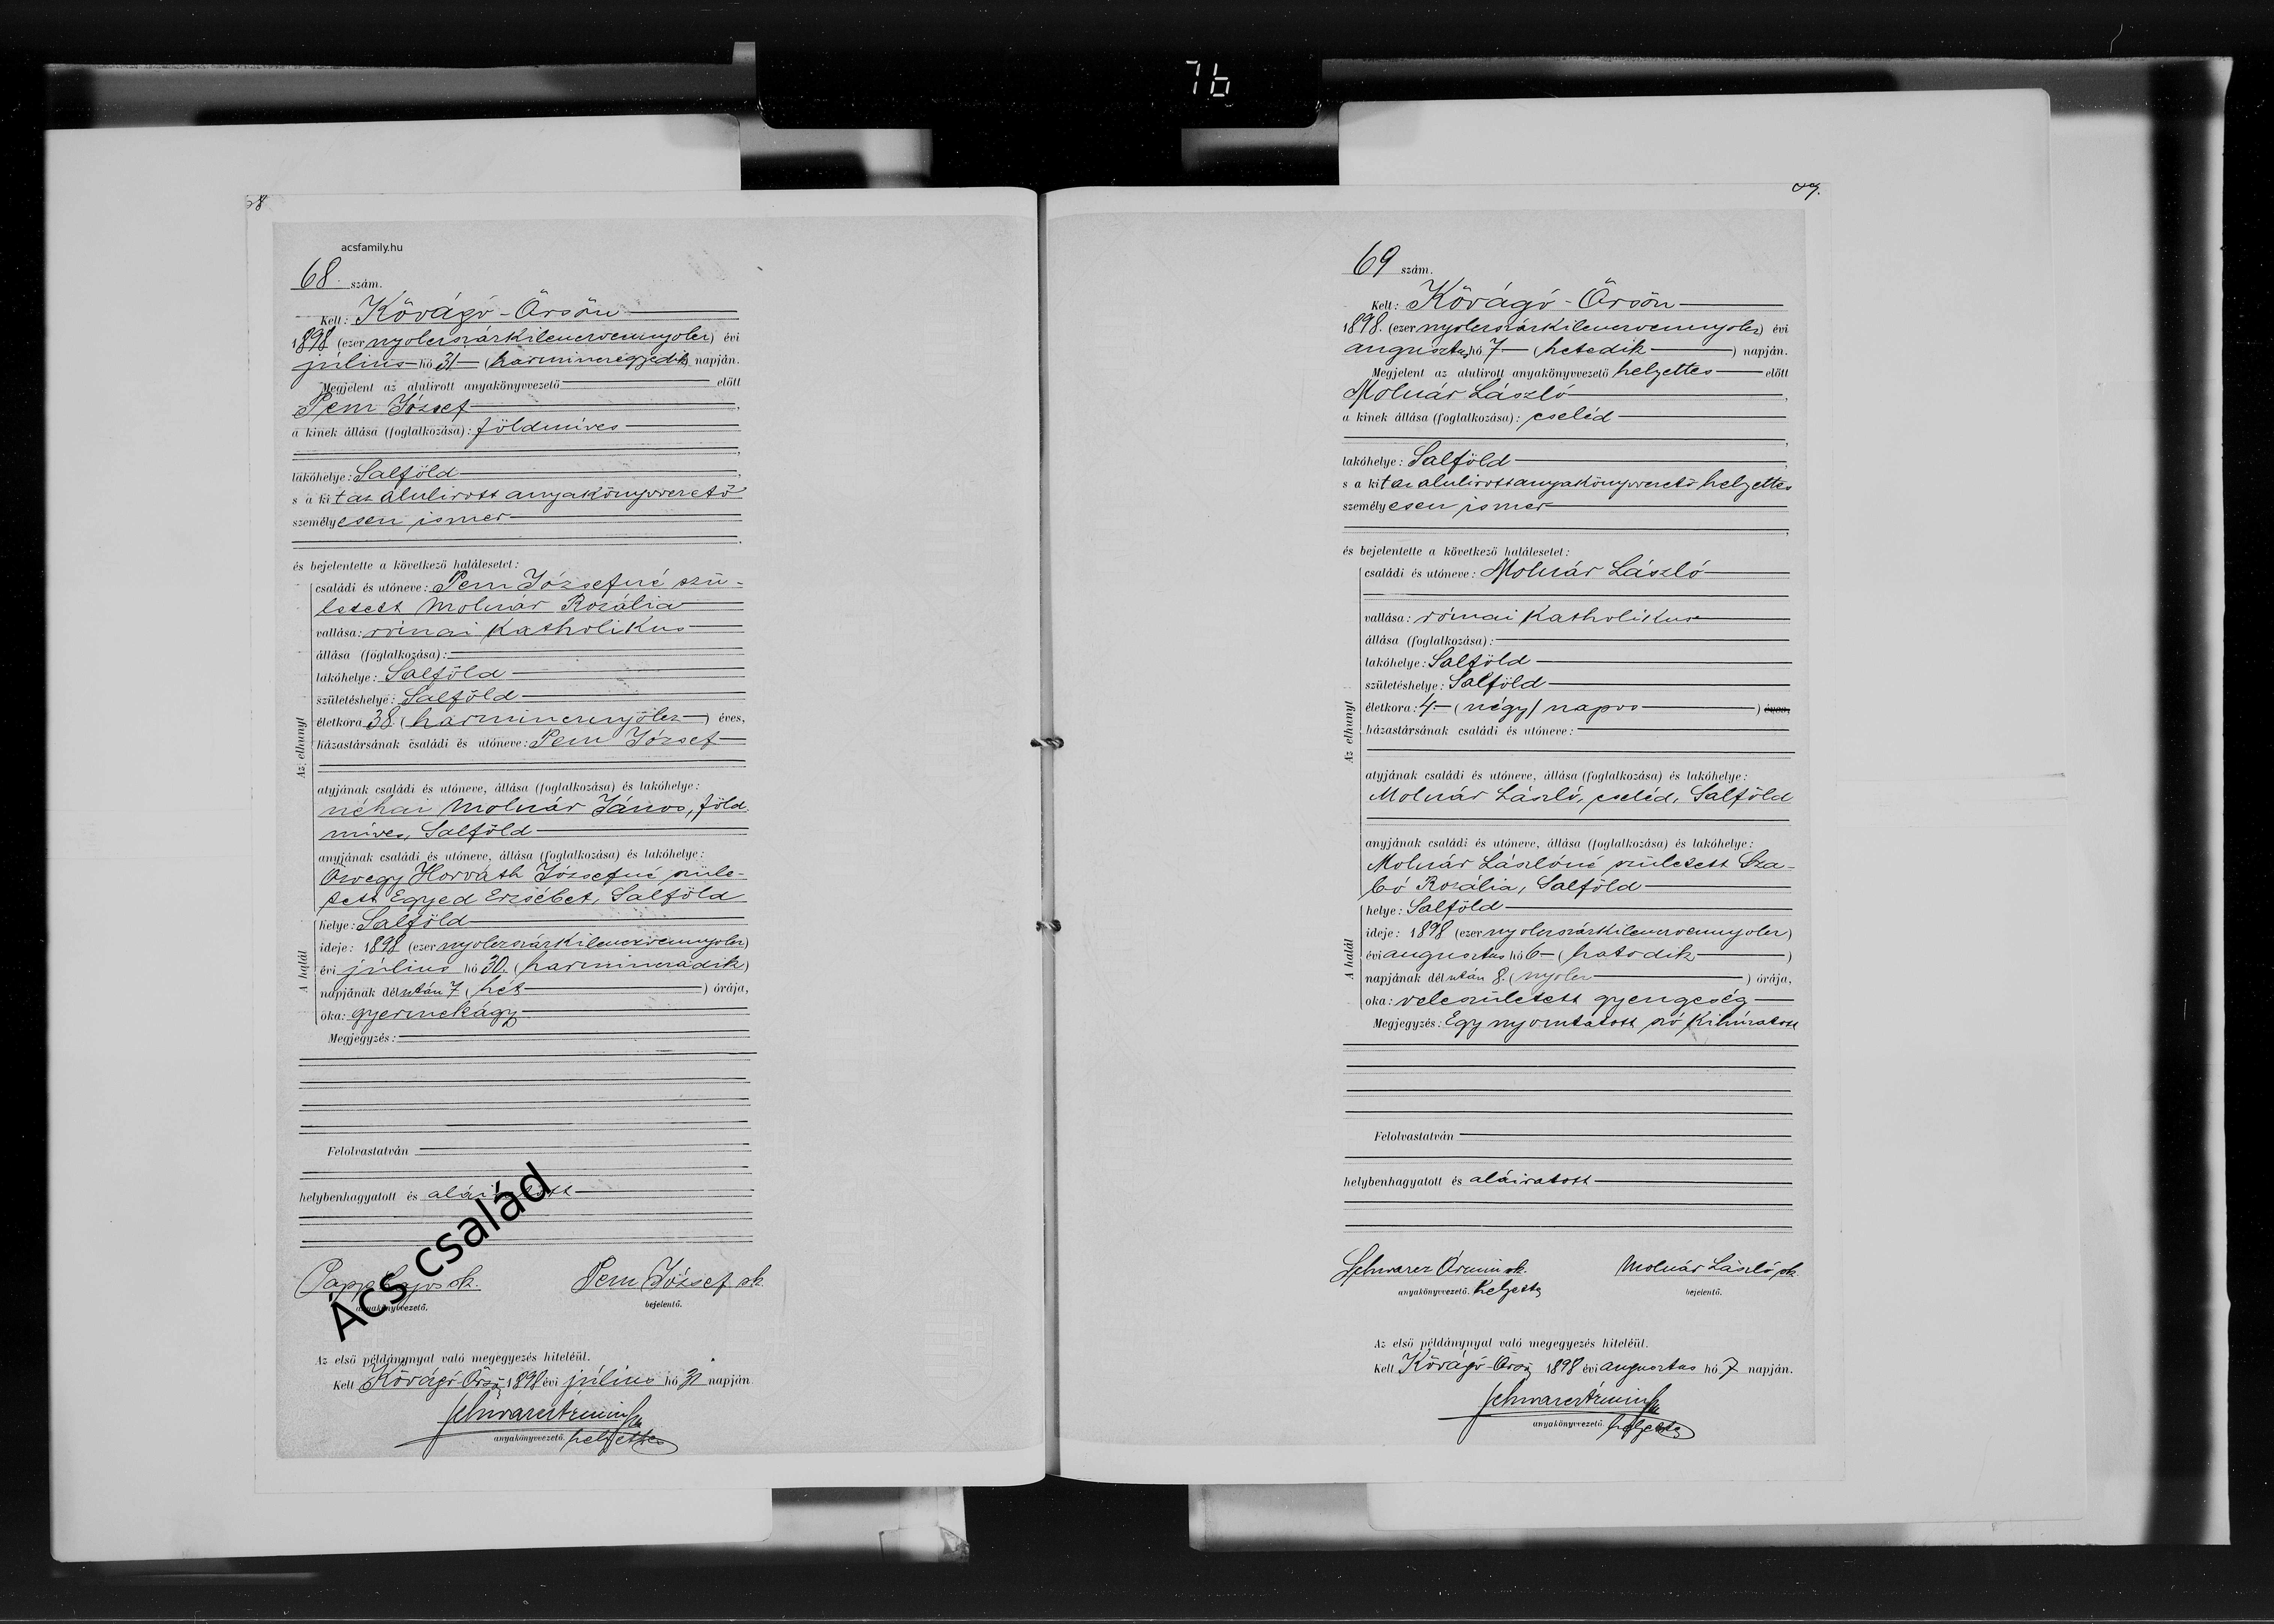 76
68
acsfamily.hu
68. szám.
Kelt: Kővágó-Örsön
1898 (ezer nyolcszázkilencvennyolcz) évi
július hó 31 (harminczegyedik) napján.
Megjelent az alulirott anyakönyvvezető előtt
Pem József,
a kinek állása (foglalkozása): földmíves
lakóhelye: Salföld,
s a kit az alulirott anyakönyvvezető
személyesen ismer
és bejelentette a következő halálesetet:
Az elhunyt
családi és utóneve: Pem Józsefné szü-
letett Molnár Rozália
vallása: római katholikus
állása (foglalkozása):
lakóhelye: Salföld
születéshelye: Salföld
életkora 38. (harmincznyolcz) éves,
házastársának családi és utóneve: Pem József
atyjának családi és utóneve, állása (foglalkozása) és lakóhelye:
néhai Molnár János, föld
míves, Salföld
anyjának családi és utóneve, állása (foglalkozása) és lakóhelye:
Özvegy Horváth Józsefné szüle-
tett Egyed Erzsébet, Salföld
A halál
helye: Salföld
ideje: 1898 (ezer nyolczszázkilenczvennyolcz)
évi július hó 30. (harminczadik)
napjának délután 7 (hét) órája,
oka: gyermekágy
Megjegyzés:
Felolvastatván
helybenhagyatott és aláiratott
Papp Lajos sk.
anyakönyvvezető.
Pem József sk.
bejelentő.
Ács család
Az első példánynyal való megegyezés hiteléül.
Kelt Kővágó-Örsön 1898 évi július hó 31 napján.
Schwarcz Ármin
anyakönyvvezető. helyettes
69.
69 szám.
Kelt: Kővágó-Örsön
1898. (ezer nyolczszázkilenczvennyolcz) évi
augusztus hó 7 (hetedik) napján.
Megjelent az alulirott anyakönyvvezető helyettes előtt
Molnár László,
a kinek állása (foglalkozása): cseléd
lakóhelye: Salföld,
s a kit az alulirott anyakönyvvezető helyettes
személyesen ismer
és bejelentette a következő halálesetet:
Az elhunyt
családi és utóneve: Molnár László
vallása: római katholikus
állása (foglalkozása):
lakóhelye: Salföld
születéshelye: Salföld
életkora: 4. (négy) napos ) éves,
házastársának családi és utóneve:
atyjának családi és utóneve, állása (foglalkozása) és lakóhelye:
Molnár László, cseléd, Salföld
anyjának családi és utóneve, állása (foglalkozása) és lakóhelye:
Molnár Lászlóné született Sza-
bó Rozália, Salföld
A halál
helye: Salföld
ideje: 1898 (ezer nyolczszázkilenczvennyolcz)
évi augusztus hó 6 (hatodik)
napjának délután 8. (nyolcz) órája,
oka: veleszületett gyengeség
Megjegyzés: Egy nyomtatott szó kihúzatott
Felolvastatván
helybenhagyatott és aláiratott
Schwarcz Ármin sk.
anyakönyvvezető. helyettes
Molnár László sk.
bejelentő.
Az első példánynyal való megegyezés hiteléül.
Kelt Kővágó-Örsön 1898 évi augusztus hó 7 napján.
Schwarcz Ármin
anyakönyvvezető. helyettes